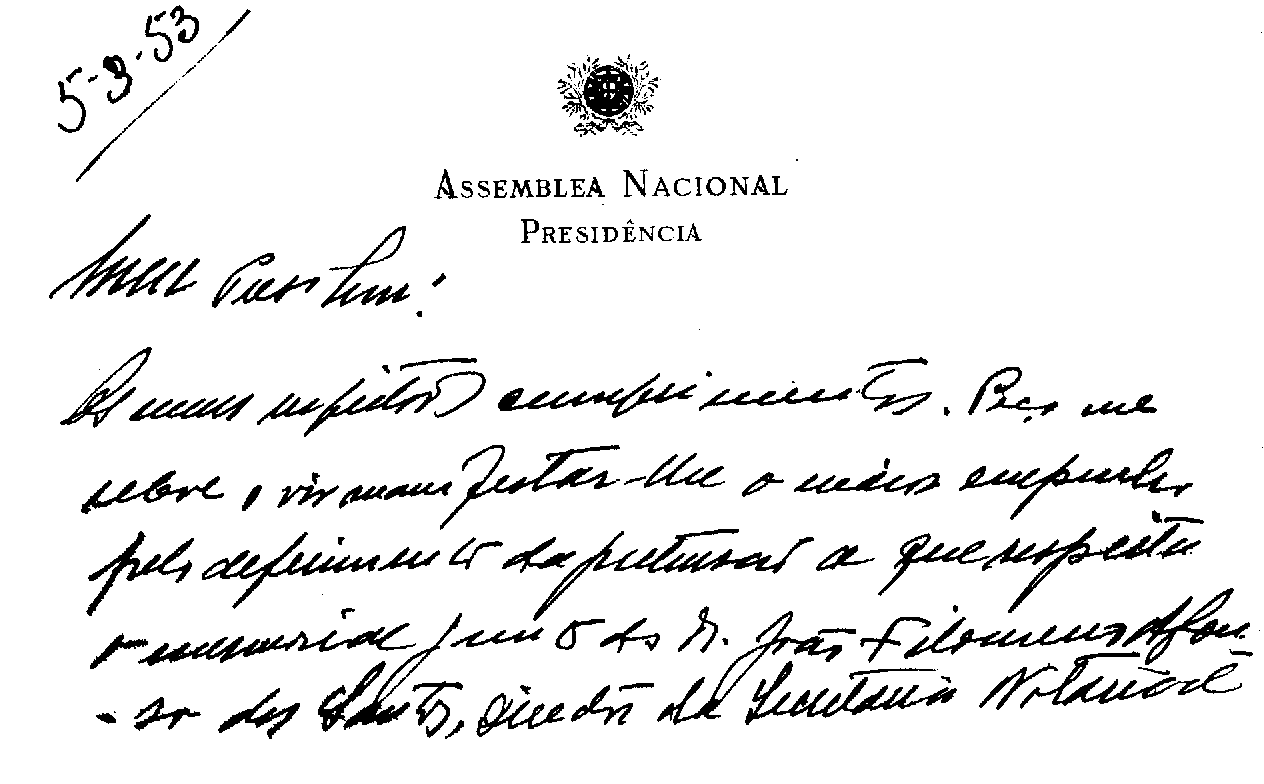 5-3-53
ASSEMBLEA NACIONAL
PRESIDÊNCIA
Meu
Os meus cumprimentos. Peço me
releve o vir manifestar-lhe o maior empenho
pelo deferimento da pretensão a que respeita
o memorial junto do Dr. João Filomeno Afon
-so dos Santos, director da Secretaria Notarial